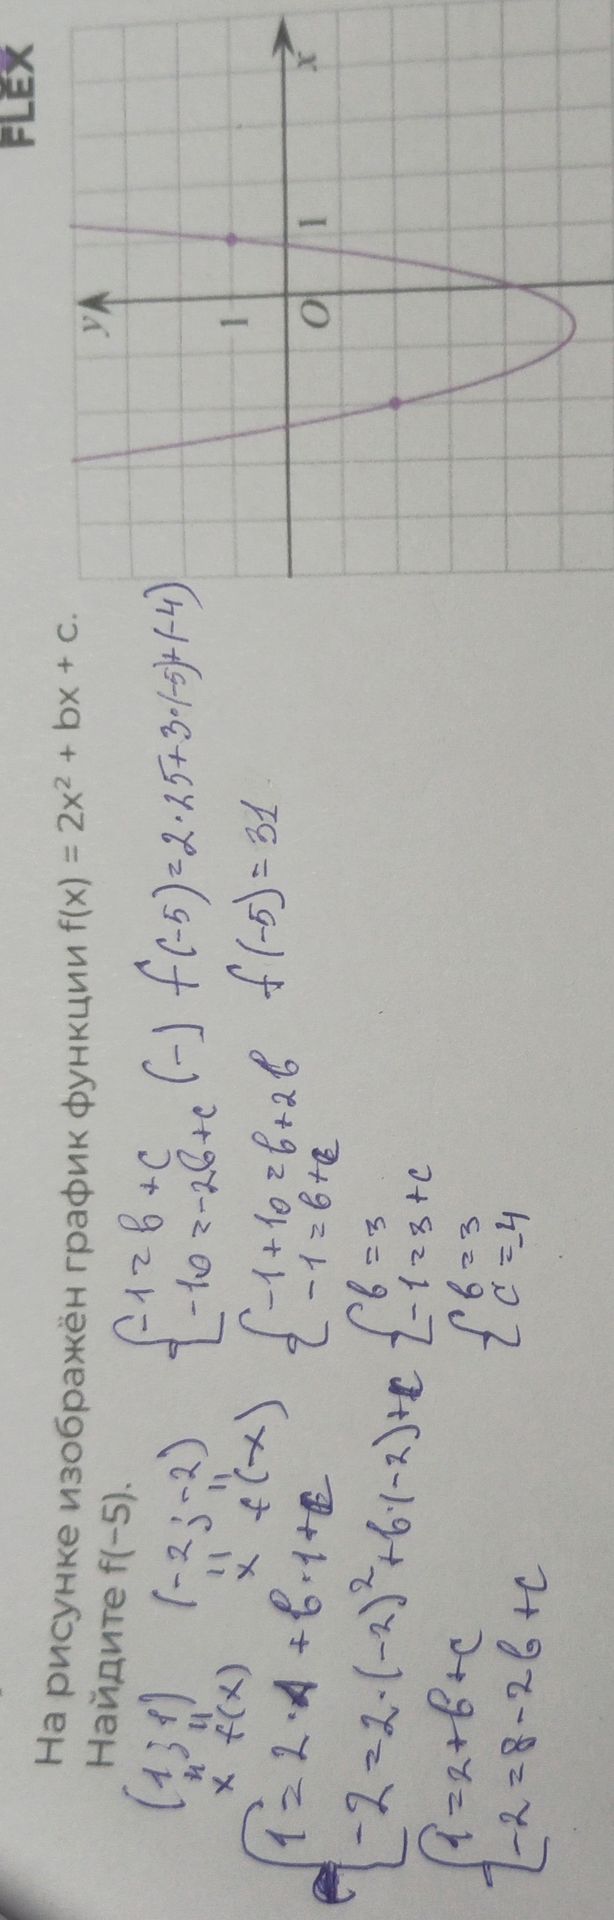 FLEX
На рисунке изображён график функции f(x) = 2x² + bx + c.
Найдите f(−5).
y
1
O
1
x
(1; 1) (-2; -2)
x f(x) x f(-x)
{1 = 2·1 + b·1 + c
-2 = 2·(-2)² + b·(-2) + c
{1 = 2 + b + c
-2 = 8 - 2b + c
{-1 = b + c
-10 = -2b + c (-)
{-1 + 10 = b + 2b
-1 = b + c
{b = 3
-1 = 3 + c
{b = 3
c = -4
f(-5) = 2·25 + 3·(-5) + (-4)
f(-5) = 31